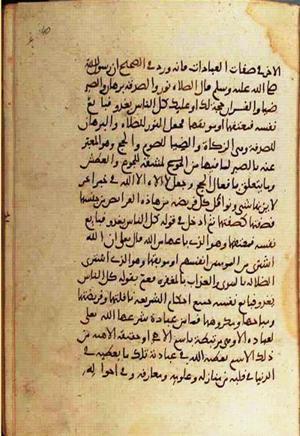 الاخرى صفات العبادات فانه ورد في الصحيح ان رسول الله
صلى الله عليه وسلم قال الصلاة نور والصدقة برهان والصبر
ضياء والقران حجة لك او عليك كل الناس يغدو فبايع
نفسه فمعتقها او موبقها فجعل النور للصلاة والبرهان
للصدقة وهي الزكاة والضياء للصوم والحج وهو المعبر
عنه بالصبر لما فيهما من المشقة للجوع والعطش
وما يتعلق بافعال الحج وجعل لا اله الا الله في خبر اخر
لا يزنها شي ونوافل كل فريضة من هذه الفرائض من جنسها
فصفتها كصفتها ثم ادخل في قوله كل الناس يغدو فبايع
نفسه فمعتقها وهو الذي باعها من الله قال تعالى ان الله
اشترى من المومنين انفسهم او موبقها وهو الذي اشترى
الضلالة بالهدى والعذاب بالمغفرة فعم بقوله كل الناس
يغدو فبايع نفسه جميع احكام الشريعة نافلتها وفريضتها
ومباحها ومكروهها فما من عبادة شرعها الله تعلى
لعباده الا وهي مرتبطة باسم الاهي او حقيقة الاهية من
ذلك الاسم يعطيه الله في عبادته تلك ما يعطيه في
الدنيا في قلبه من منازله وعلومه ومعارفه وفي احواله